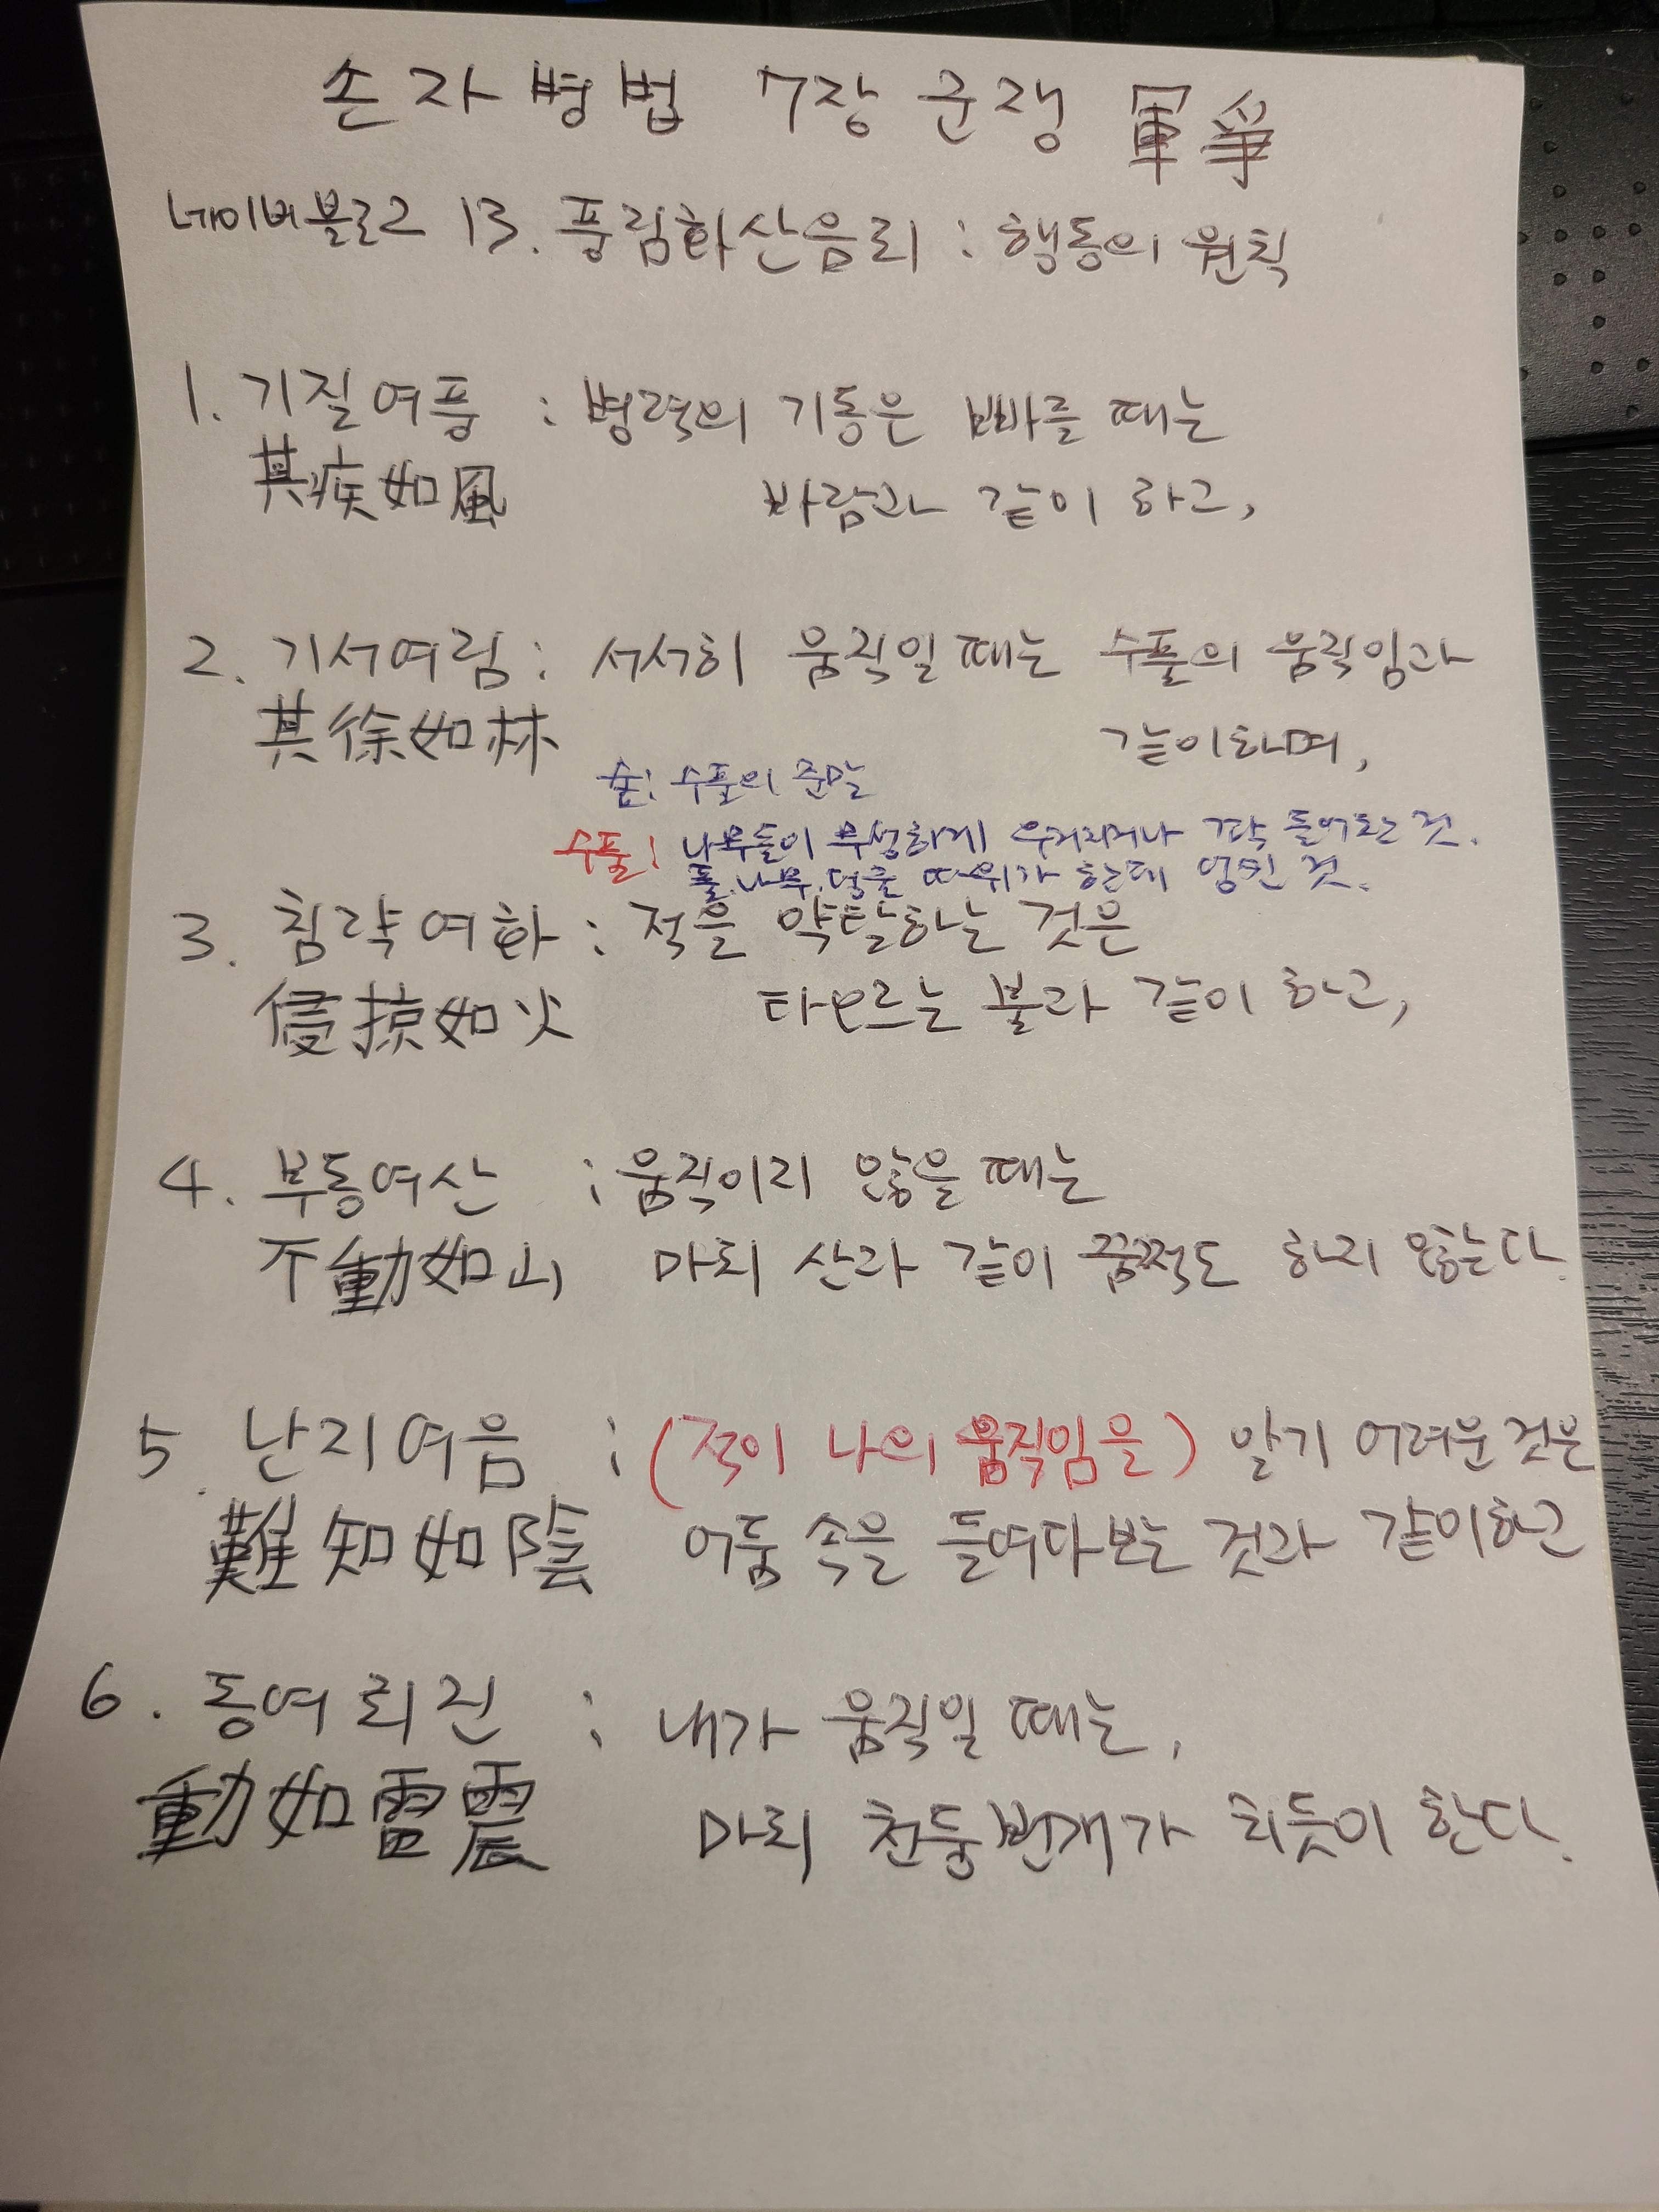 손자병법 7장 군쟁 軍爭
네이버블로그 13. 풍림화산음뢰 : 행동의 원칙
1. 기질여풍 : 병력의 기동은 빠를 때는
其疾如風 바람과 같이 하고,
2. 기서여림 : 서서히 움직일 때는 수풀의 움직임과
其徐如林 같이하며,
숲 : 수풀의 준말
수풀 : 나무들이 무성하게 우거지거나 꽉 들어찬 것.
풀, 나무, 덩굴 따위가 한데 엉킨 것.
3. 침략여화 : 적을 약탈하는 것은
侵掠如火 타오르는 불과 같이 하고,
4. 부동여산 : 움직이지 않을 때는
不動如山 마치 산과 같이 꿈쩍도 하지 않는다.
5. 난지여음 : (적이 나의 움직임을) 알기 어려운 것은
難知如陰 어둠 속을 들여다보는 것과 같이하고
6. 동여뢰진 : 내가 움직일 때는,
動如雷震 마치 천둥번개가 치듯이 한다.